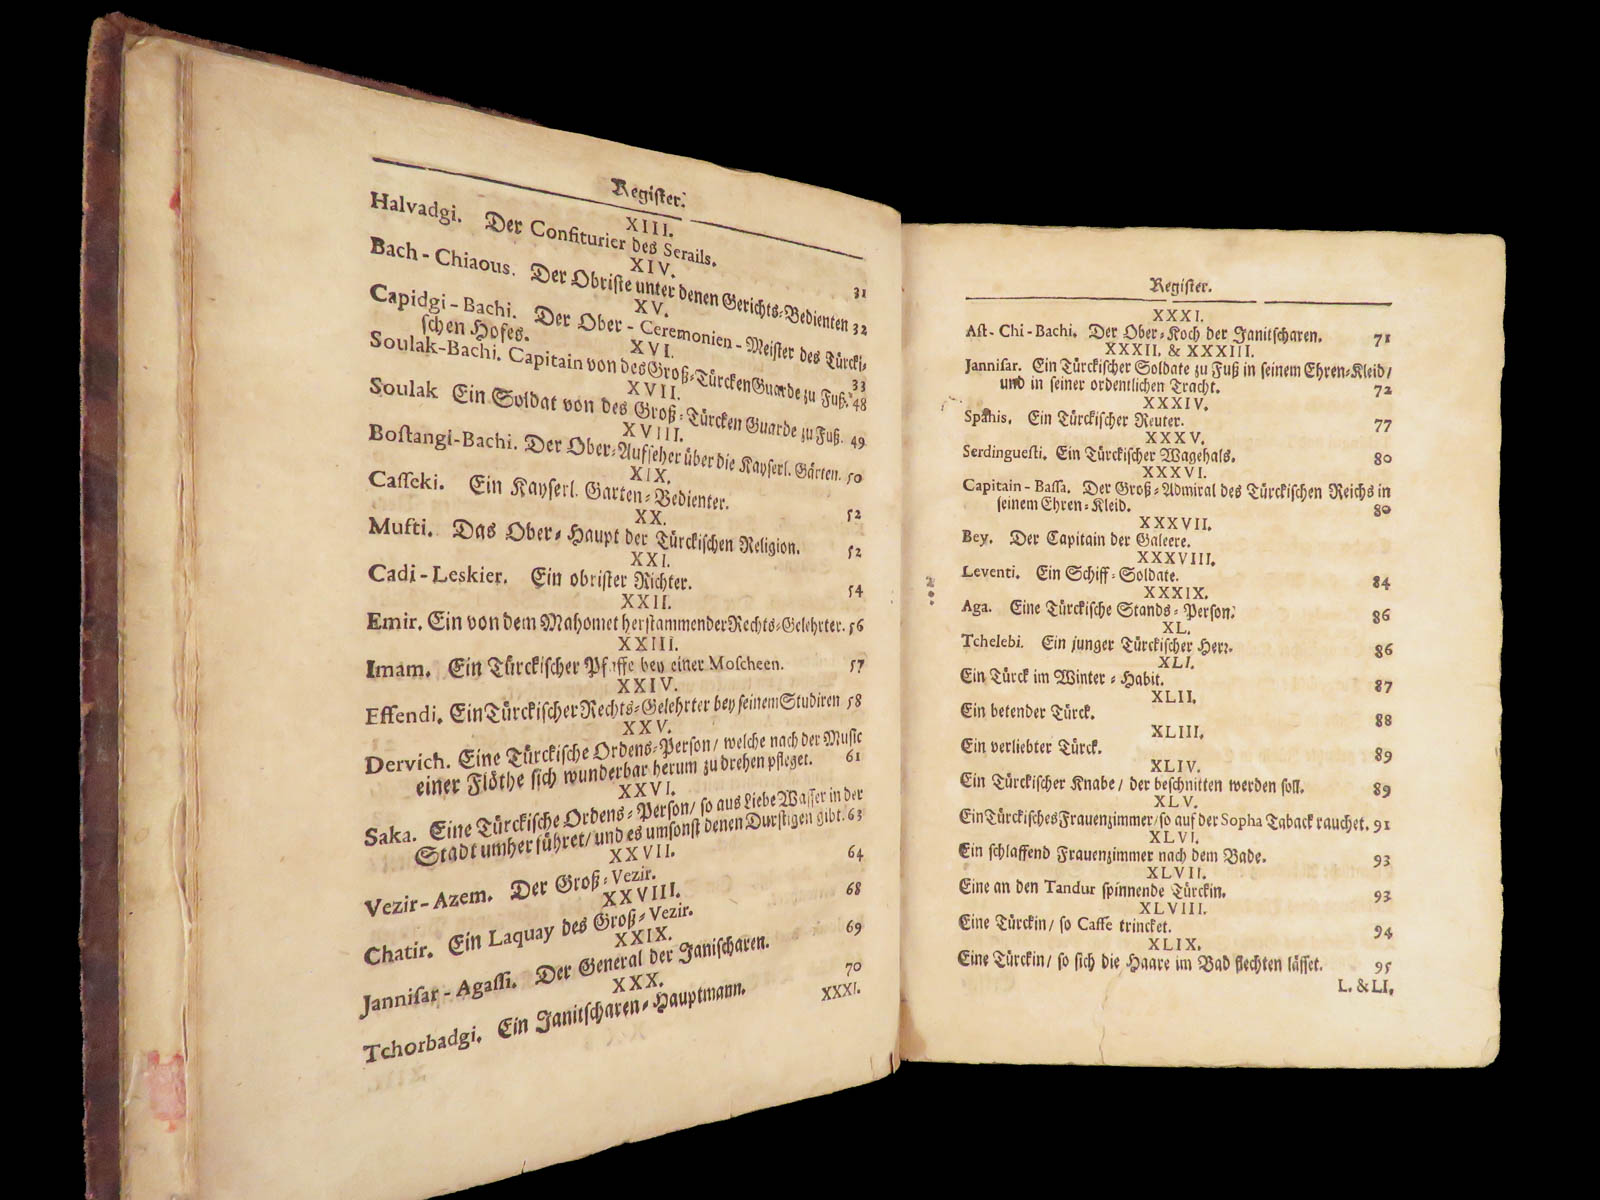 Register.
XIII.
Halvadgi. Der Confiturier des Serails. 31
XIV.
Bach-Chiaous. Der Obriste unter denen Gerichts-Bedienten 32
XV.
Capidgi-Bachi. Der Ober-Ceremonien-Meister des Türcki-
schen Hofes. 33
XVI.
Soulak-Bachi. Capitain von des Groß-Türcken Guarde zu Fuß. 48
XVII.
Soulak Ein Soldat von des Groß-Türcken Guarde zu Fuß. 49
XVIII.
Bostangi-Bachi. Der Ober-Aufseher über die Kayserl. Gärten. 50
XIX.
Casseki. Ein Kayserl. Garten-Bedienter. 52
XX.
Mufti. Das Ober-Haupt der Türckischen Religion. 52
XXI.
Cadi-Leskier. Ein obrister Richter. 54
XXII.
Emir. Ein von dem Mahomet herstammender Rechts-Gelehrter. 56
XXIII.
Imam. Ein Türckischer Pfaffe bey einer Moscheen. 57
XXIV.
Effendi. Ein Türckischer Rechts-Gelehrter bey seinem Studiren 58
XXV.
Dervich. Eine Türckische Ordens-Person/ welche nach der Music
einer Flöthe sich wunderbar herum zu drehen pfleget. 61
XXVI.
Saka. Eine Türckische Ordens-Person/ so aus Liebe Wasser in der
Stadt umher führet/ und es umsonst denen Durstigen gibt. 63
XXVII.
Vezir-Azem. Der Groß-Vezir. 64
XXVIII.
Chatir. Ein Laquay des Groß-Vezir. 68
XXIX.
Jannisar-Agassi. Der General der Janischaren. 69
XXX.
Tchorbadgi. Ein Janitscharen-Hauptmann. 70
XXXI.
Register.
XXXI.
Ast-Chi-Bachi. Der Ober-Koch der Janitscharen. 71
XXXII. & XXXIII.
Jannisar. Ein Türckischer Soldate zu Fuß in seinem Ehren-Kleid/
und in seiner ordentlichen Tracht. 72
XXXIV.
Spahis. Ein Türckischer Reuter. 77
XXXV.
Serdinguesti. Ein Türckischer Wagehals. 80
XXXVI.
Capitain-Bassa. Der Groß-Admiral des Türckischen Reichs in
seinem Ehren-Kleid. 80
XXXVII.
Bey. Der Capitain der Galeere.
XXXVIII.
Leventi. Ein Schiff-Soldate. 84
XXXIX.
Aga. Eine Türckische Stands-Person. 86
XL.
Tchelebi. Ein junger Türckischer Herr. 86
XLI.
Ein Türck im Winter-Habit. 87
XLII.
Ein betender Türck. 88
XLIII.
Ein verliebter Türck. 89
XLIV.
Ein Türckischer Knabe/ der beschnitten werden soll. 89
XLV.
Ein Türckisches Frauenzimmer/ so auf der Sopha Taback rauchet. 91
XLVI.
Ein schlaffend Frauenzimmer nach dem Bade. 93
XLVII.
Eine an den Tandur spinnende Türckin. 93
XLVIII.
Eine Türckin/ so Caffe trincket. 94
XLIX.
Eine Türckin/ so sich die Haare im Bad flechten lässet. 95
L. & LI.